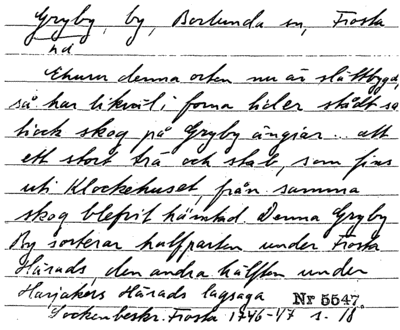 Gryby, by, Borlunda sn, Frosta
hd
Ehuru denna orten nu är slättbygd,
så har likväl i forna tider stådt så
tiock skog på Gryby ängiar ... att
ett stort trä och stab, som fins
uti Klockehuset, från samma
skog blefvit hämtad. Denna Gryby
By sorterar halfparten under Frosta
Härads, den andra hälften under
Harjakers Härads lagsaga
Nr 5547.
Sockenbeskr. Frosta 1746-47 s. 18